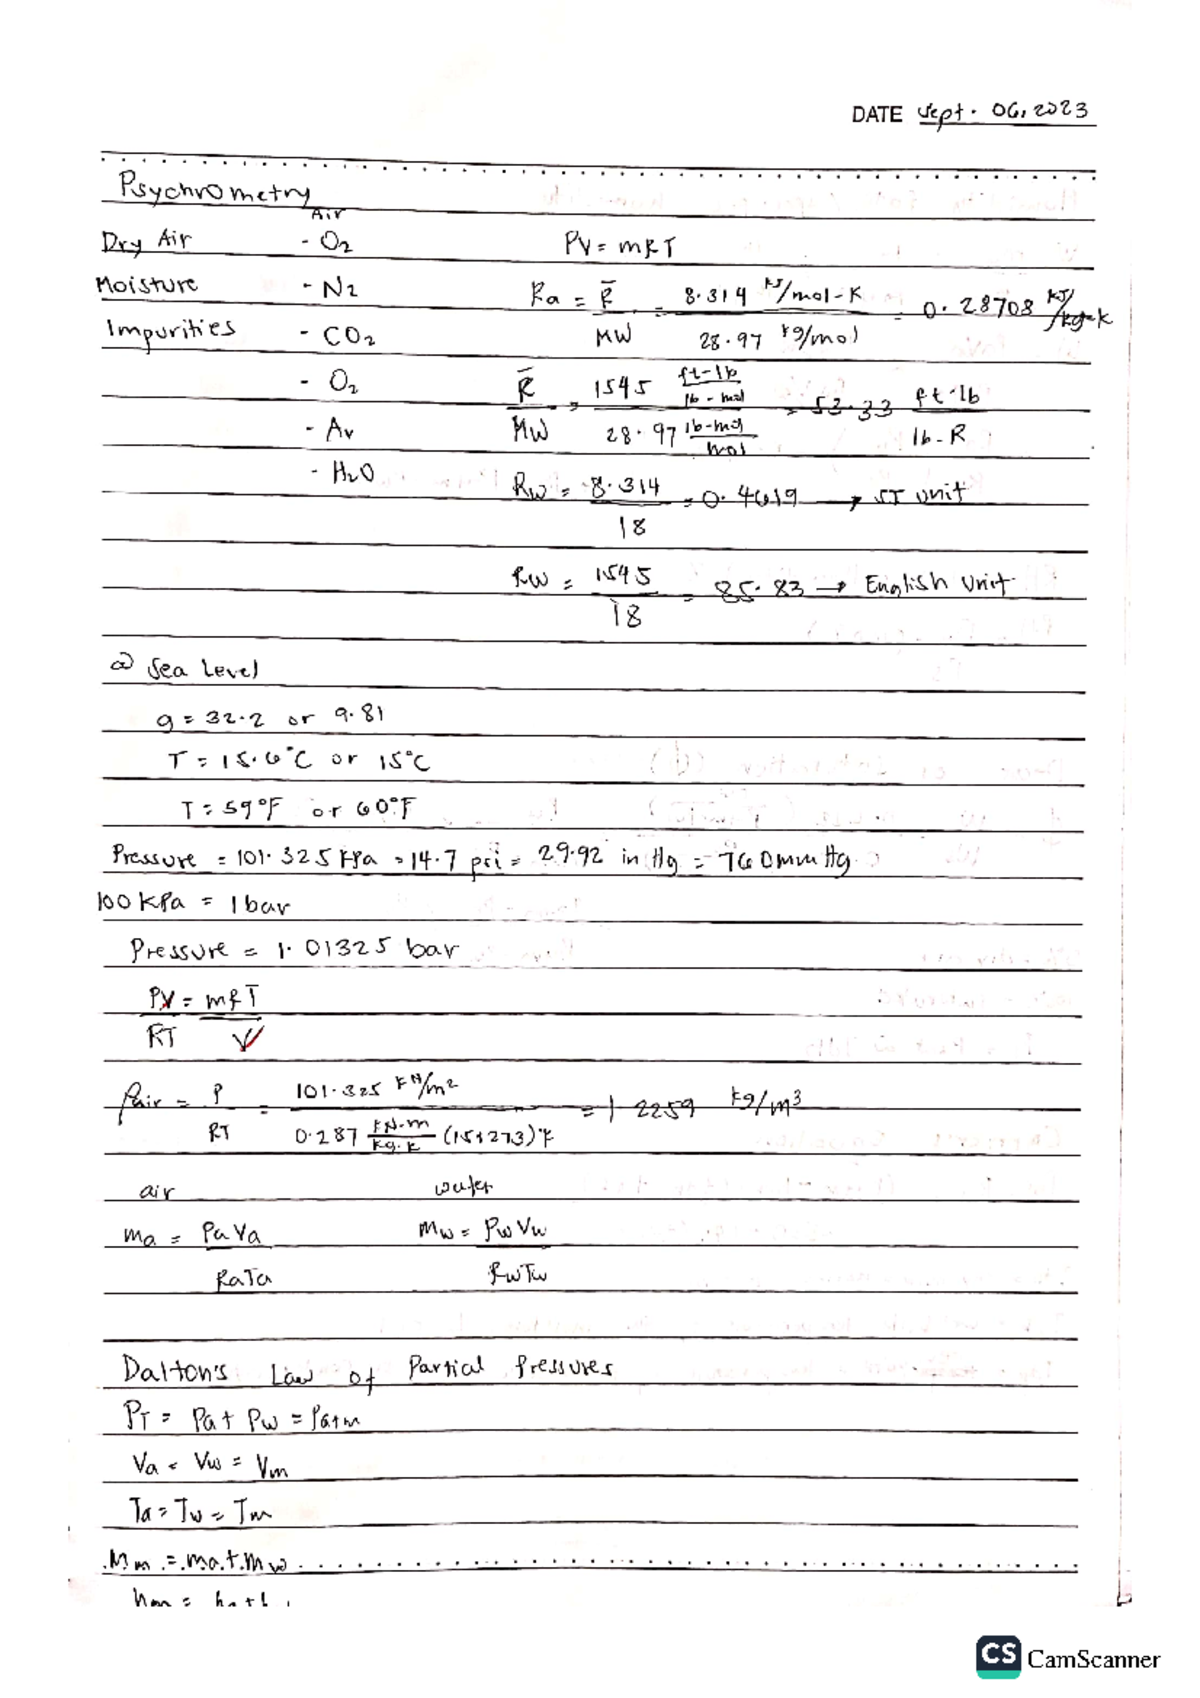 DATE Sept. 06, 2023
Psychrometry
Air
Dry Air - O2 PV = mRT
Moisture - N2 Ra = R̄/MW = 8.314 KJ/mol-K / 28.97 kg/mol = 0.28708 KJ/kg-K
Impurities - CO2
- O2 R̄/MW = 1545 ft-lb/lb-mol / 28.97 lb-mol/mol = 53.33 ft-lb/lb-R
- Ar
- H2O Rw = 8.314/18 = 0.4619 → SI unit
Rw = 1545/18 = 85.83 → English Unit
@ Sea Level
g = 32.2 or 9.81
T = 15.6°C or 15°C
T = 59°F or 60°F
Pressure = 101.325 KPa = 14.7 psi = 29.92 in Hg = 760mm Hg
100 KPa = 1 bar
Pressure = 1.01325 bar
PV/RT = mRT/V
ρair = P/RT = 101.325 KN/m² / 0.287 KN.m/Kg.K (15+273)°K = 1.2259 kg/m³
air water
ma = PaVa/RaTa mw = PwVw/RwTw
Dalton's Law of Partial Pressures
PT = Pa + Pw = Patm
Va = Vw = Vm
Ta = Tw = Tm
Mm = ma + mw
CS CamScanner